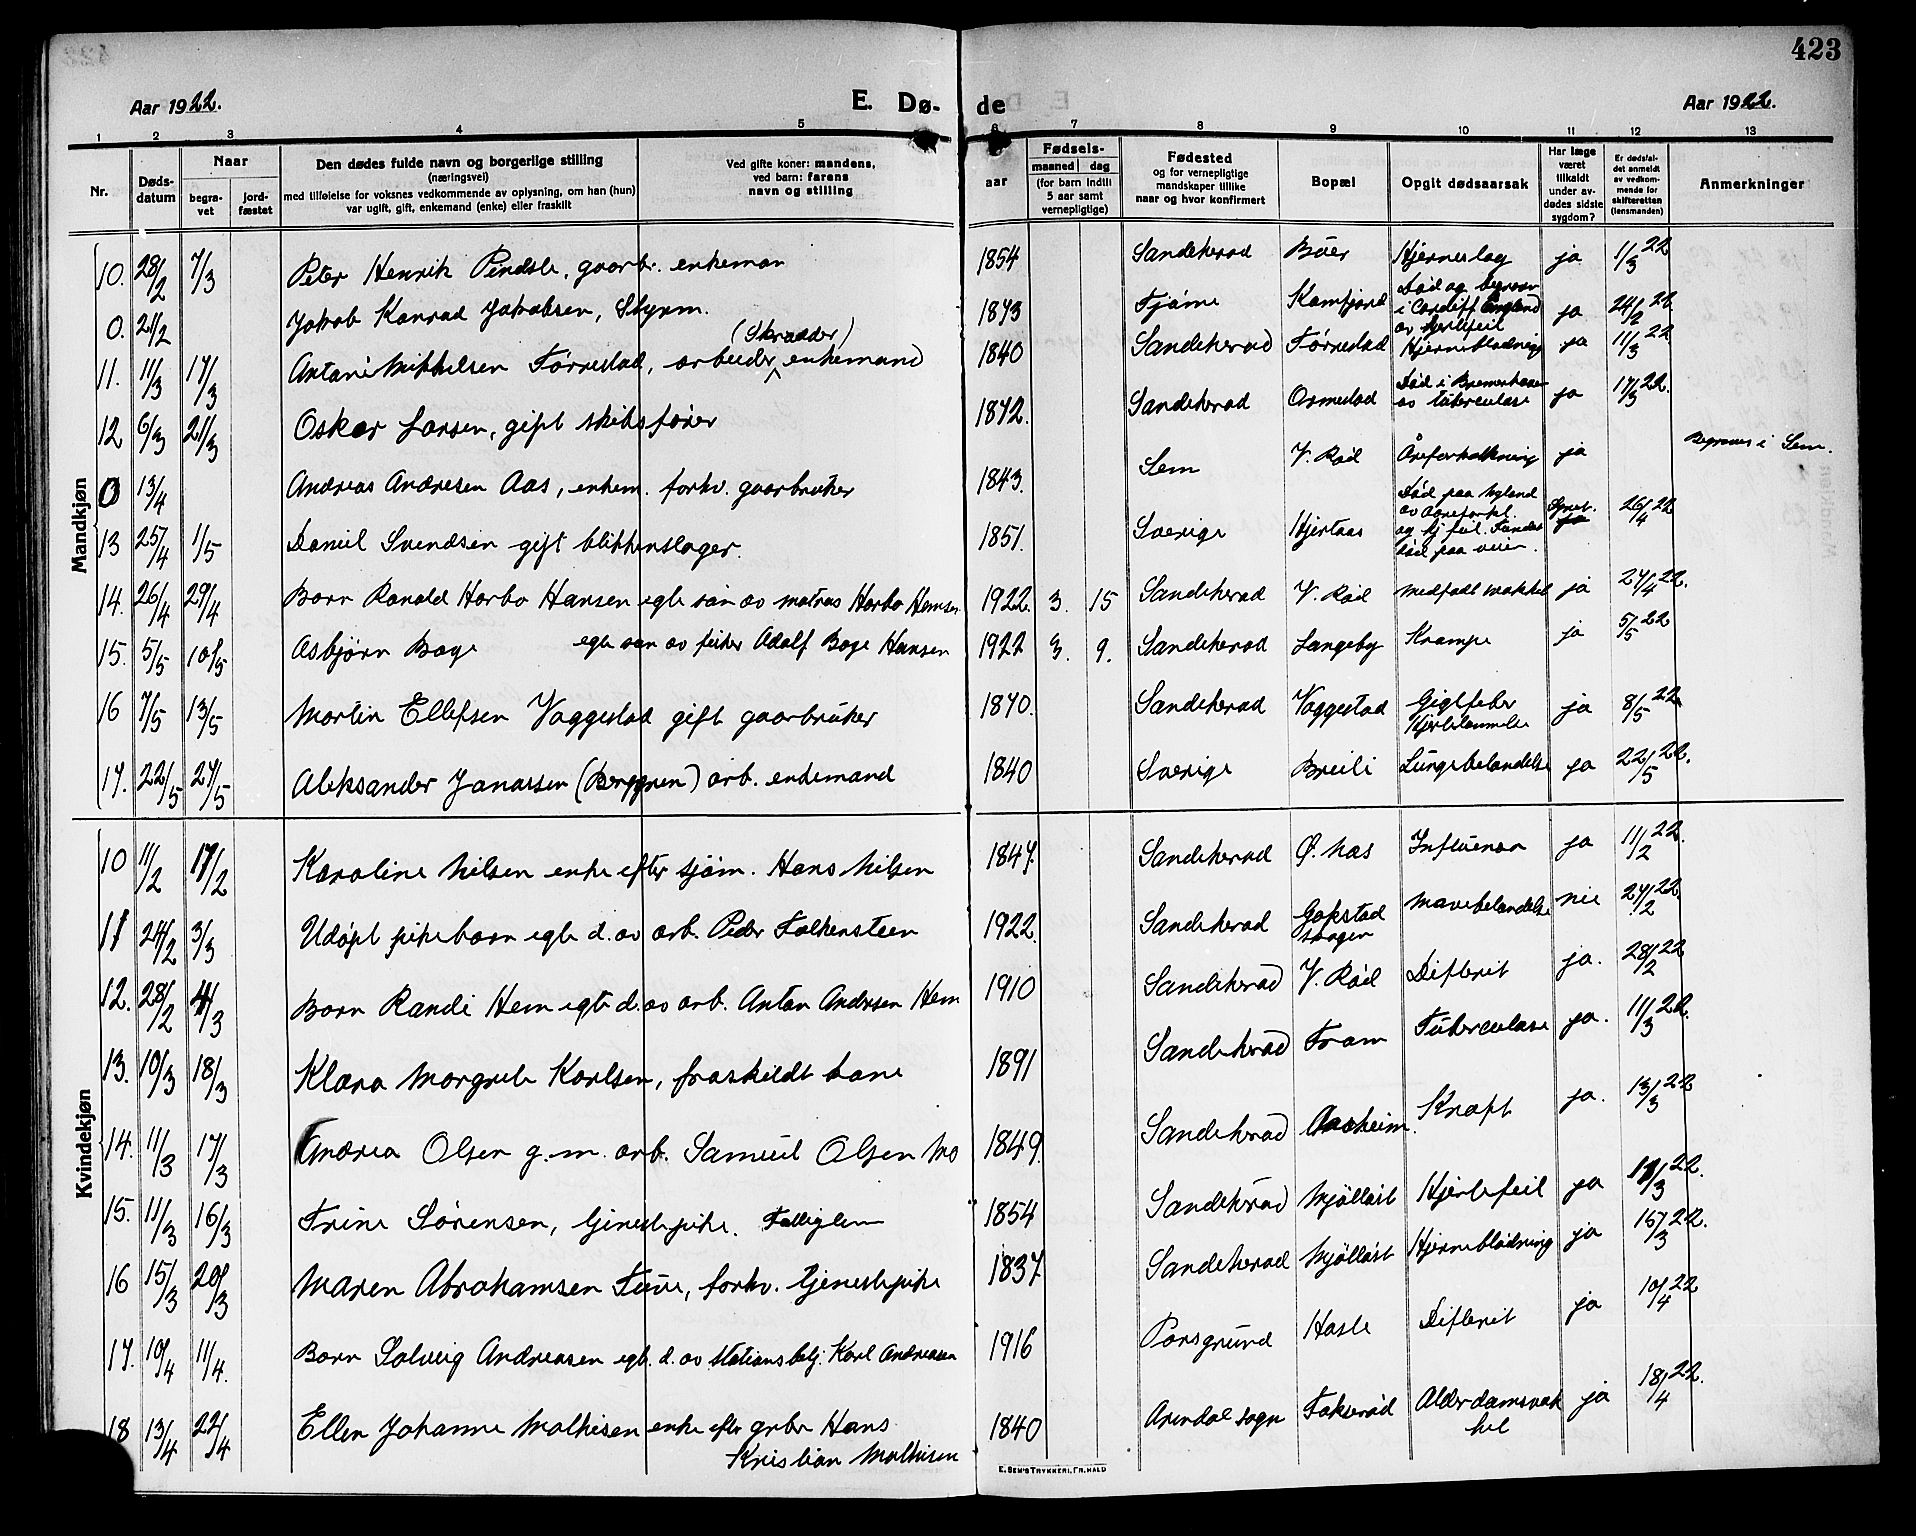 423
Aar 1922. E. Dø- de Aar 1922.
1 2 3 4 5 6 7 8 9 10 11 12 13
Nr. Døds-datum Naar begra-vet jord-fæstet Den dødes fulde navn og borgerlige stilling (næringsvei) med tilføielse for voksnes vedkommende av oplysning, om han (hun) var ugift, gift, enkemand (enke) eller fraskilt Ved gifte koner: mandens, ved barn: farens navn og stilling aar Fødsels- maaned dag (for barn indtil 5 aar samt vernepligtige) Fødested og for vernepligtige mandskaper tillike naar og hvor konfirmert Bopæl Opgit dødsaarsak Har læge været tilkaldt under av-dødes sidste sygdom? Er dødsfal-det anmeldt av vedkom-mende for skifteretten (lensmanden) Anmerkninger
Mandkjøn
10. 28/2 7/3 Peter Henrik Pindsle, gaarbr. enkeman 1854 Sandeherad Bøer Hjerneslag ja 1/3 22
0. 21/2 Jakob Konrad Jakobsen, Styrm. 1873 Tjøme Kamfjord Død og begravn i Cardiff England av hjertefeil ja 24/2 22.
11. 11/3 17/3 Antoni Mikkelsen Førrestad, arbeider (Skrædder) enkemand 1840 Sandeherad Førrestad Hjerneblødning ja 11/3 22
12 6/3 21/3 Oskar Larsen, gift skibsfører 1872. Sandeherad Ormestad Død i Bremerhaven av tuberculose ja 17/3 22.
0 13/4 Andreas Andresen Aas, enkem. forhv. gaarbruker 1843. Sem V. Rød Åreforkalkning ja Begraves i Sem.
13 25/4 1/5 Daniel Svendsen gift blikkenslager. 1851. Sverige Hjertaas Død paa Nyland av Aareforkl. og Hj feil. Fundet død paa veien. Synet. 26/4 22
14. 26/4 29/4 Barn Ronald Harbo Hansen egte søn av matros Harbo Hansen 1922. 3. 15 Sandeherad V. Rød Medfødt svakhet ja 27/4 22.
15. 5/5 10/5 Asbjørn Boge egte søn av fisker Adolf Boge Hansen 1922 3. 9. Sandeherad Langeby Krampe ja 5/5 22
16 7/5 13/5 Martin Ellefsen Vaggestad gift gaarbruker 1870. Sandeherad Vaggestad Gigtfeber Hjertelammelse ja 8/5 22
17. 22/5 27/5 Aleksander Jonassen (Berggren) arb. enkemand 1840 Sverige Breili Lungebetændelse ja 22/5 22.
Kvindekjøn
10 11/2 17/2 Karoline Nilsen enke efter sjøm. Hans Nilsen 1847. Sandeherad Ø. Aas Influensa ja 11/2 22.
11 24/2 3/3 Udøpt pikebarn egte d. av arb. Peder Falkensteen 1922. Sandeherad Gokstad skogen Mavebetændelse nei 27/2 22
12. 28/2 4/3 Barn Randi Hem egte d. av arb. Anton Andersen Hem 1910 Sandeherad V. Rød Difterit ja. 28/2 22
13. 10/3 18/3 Klara Margrete Karlsen, fraskildt kone 1891 Sandeherad Fram Tuberculose ja. 11/3 22.
14. 11/3 17/3 Andrea Olsen g. m. arb. Samuel Olsen Mo 1849. Sandeherad Aasheim. Kræft ja. 13/3 22
15. 11/3 16/3 Trine Sørensen, tjenestepike. Fattiglem 1854 Sandeherad Mjølløst Hjertefeil ja 11/3 22.
16 15/3 20/3 Maren Abrahamsen Tuve, forhv. tjenestepike 1837. Sandeherad Mjølløst Hjerneblødning ja 15/3 22.
17. 10/4 11/4. Barn Solveig Andreasen egte d. av stationsbetj. Karl Andreasen 1916 Porsgrund Hasle Difterit ja 10/4 22
18 13/4 22/4 Ellen Johanne Mathisen enke efter grbr Hans Kristian Mathisen 1840 Arendal sogn Fokserød Alderdomsvakhet ja 18/4 22.
E. SEM'S TRYKKERI, FR. HALD